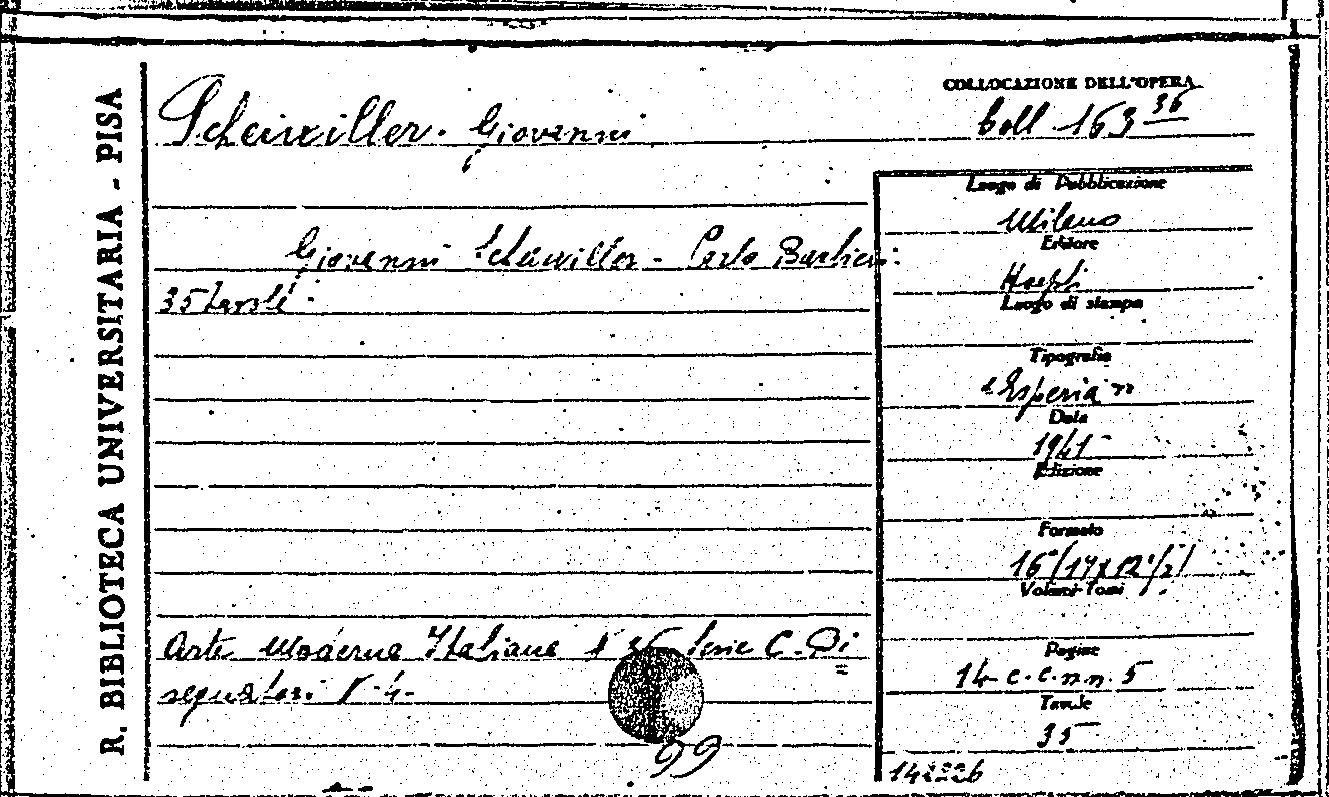 R. BIBLIOTECA UNIVERSITARIA - PISA
Scheiwiller. Giovanni
COLLOCAZIONE DELL'OPERA
Coll 163 36
Giovanni Scheiwiller - Carlo Barbieri.
35 tavole -
Luogo di Pubblicazione
Milano
Editore
Hoepli
Luogo di stampa
Tipografia
"Esperia"
Data
1941
Edizione
Formato
16°/17x12 1/2/
Volumi-tomi
Pagine
14 c.c.n.n. 5
Tavole
35
Arte Moderna Italiana N 36 Serie C. Di
segnatori N. 4.
99